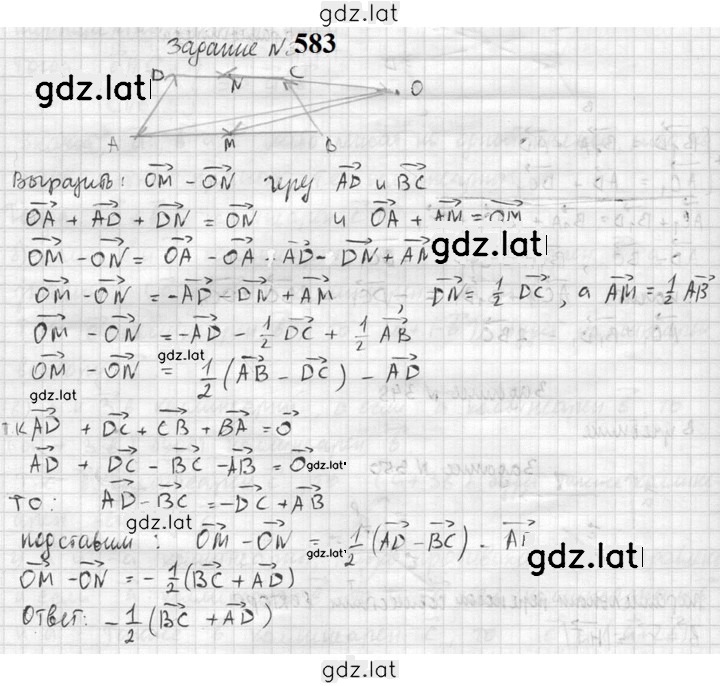 gdz.lat
Задание № 583
gdz.lat
D N C O
A M B
Выразить: OM - ON через AD и BC
OA + AD + DN = ON и OA + AM = OM
gdz.lat
OM - ON = OA - OA - AD - DN + AM
OM - ON = -AD - DN + AM, DN = 1/2 DC, а AM = 1/2 AB
OM - ON = -AD - 1/2 DC + 1/2 AB
gdz.lat
OM - ON = 1/2 (AB - DC) - AD
gdz.lat
т.к AD + DC + CB + BA = O
AD + DC - BC - AB = O
gdz.lat
то: AD - BC = -DC + AB
gdz.lat
подставим: OM - ON = 1/2 (AD - BC) - AD
gdz.lat
gdz.lat
OM - ON = - 1/2 (BC + AD)
Ответ: - 1/2 (BC + AD)
gdz.lat